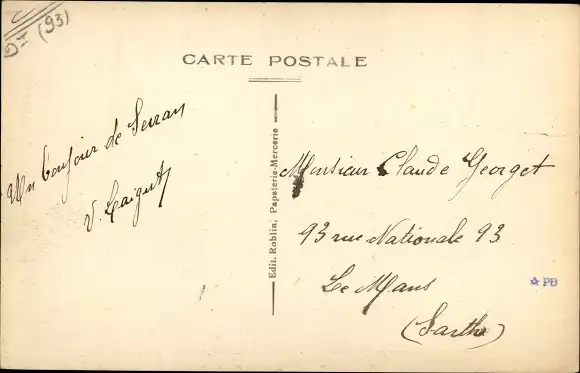 (93)
CARTE POSTALE
Un bonjour de Serran
V.
Edit. Roblin, Papeterie-Mercerie
Monsieur Claude Georget
93 rue Nationale 93
Le Mans
(Sarthe)
PB